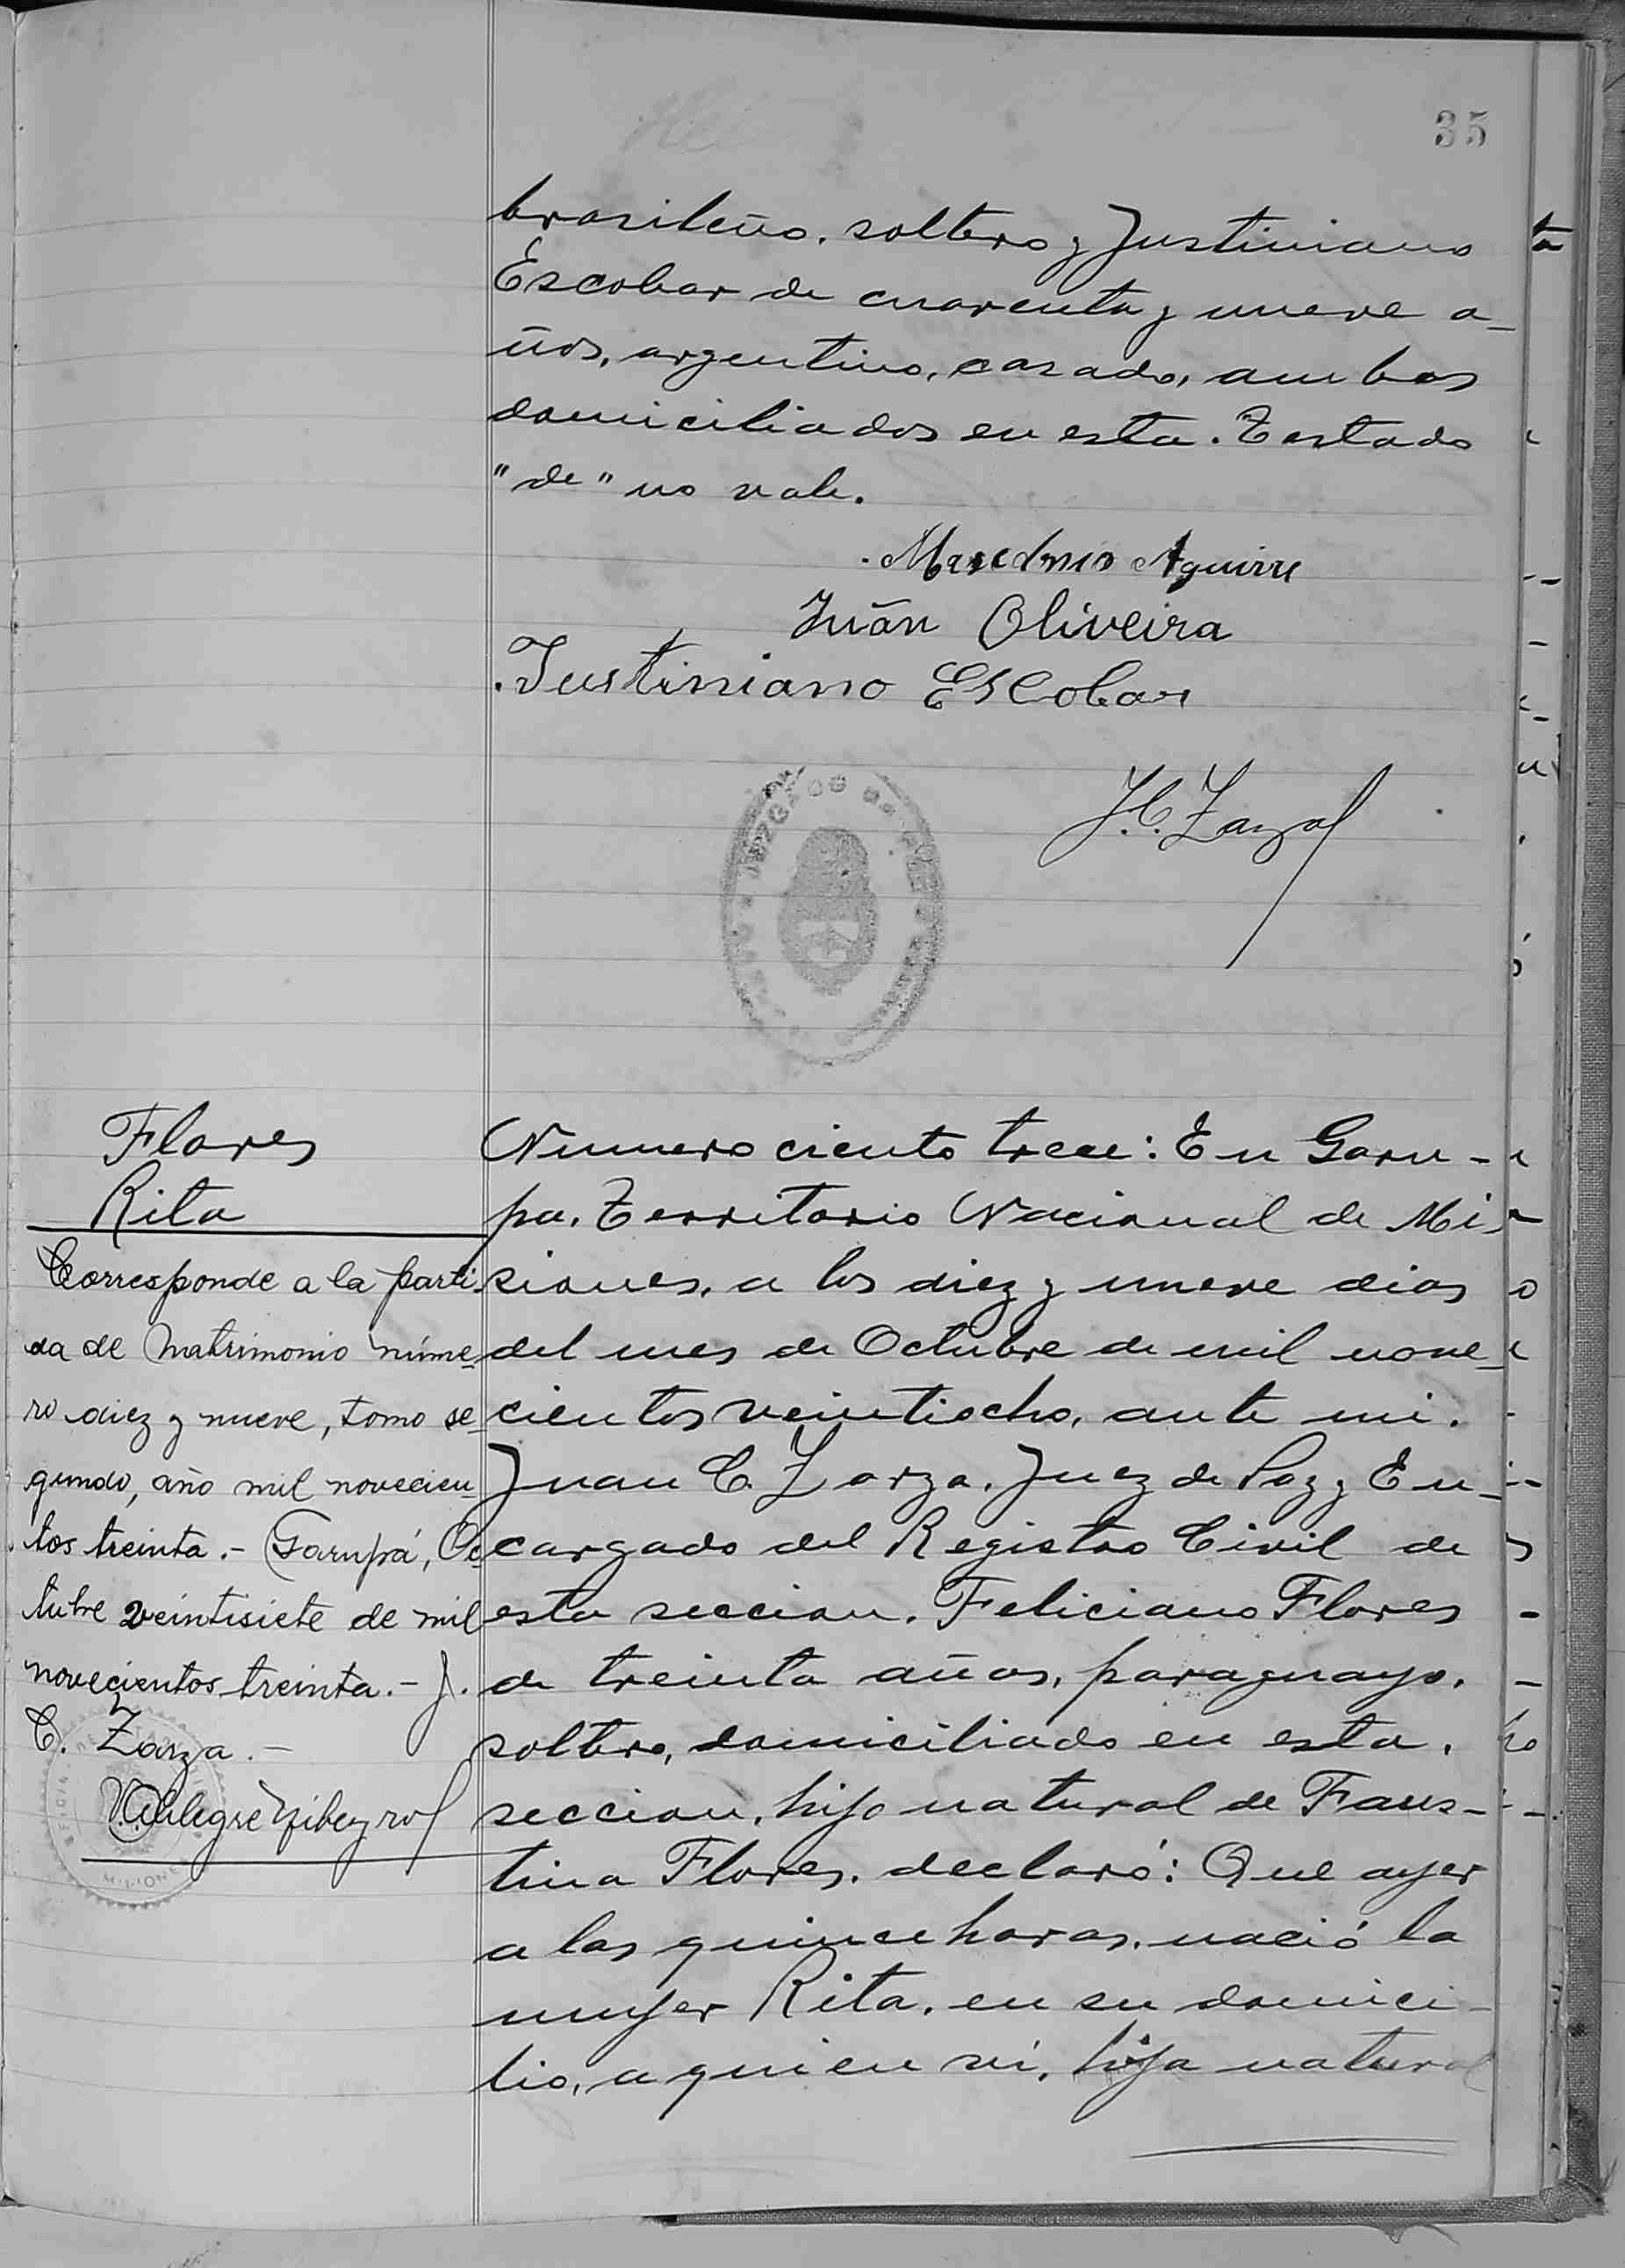 35
brasileño. soltero y Justiniano
Escobar de cuarenta y nueve a-
ños, argentino, casado, ambos
domiciliados en esta. Testado
"de" no vale.
Aguirre
Juan Oliveira
Justiniano Escobar
J.C. Zarza
Flores
Rita
Corresponde a la parti-
da de matrimonio núme-
ro diez y nueve, tomo se-
gundo, año mil novecien-
tos treinta.- Garupá, Oc-
tubre veintisiete de mil
novecientos treinta.- J.
C. Zarza.-
Numero ciento trece: En Garu-
pa. Territorio Nacional de Mi-
siones, a los diez y nueve dias
del mes de Octubre de mil nove-
cientos veintiocho, ante mi.
Juan C. Zarza. Juez de Paz y En-
cargado del Registro Civil de
esta seccion. Feliciano Flores
de treinta años, paraguayo,
soltero, domiciliado en esta.
seccion, hijo natural de Faus-
tina Flores. declaró: Que ayer
a las quince horas. nació la
mujer Rita. en su domici-
lio, a quien vi. hija natural